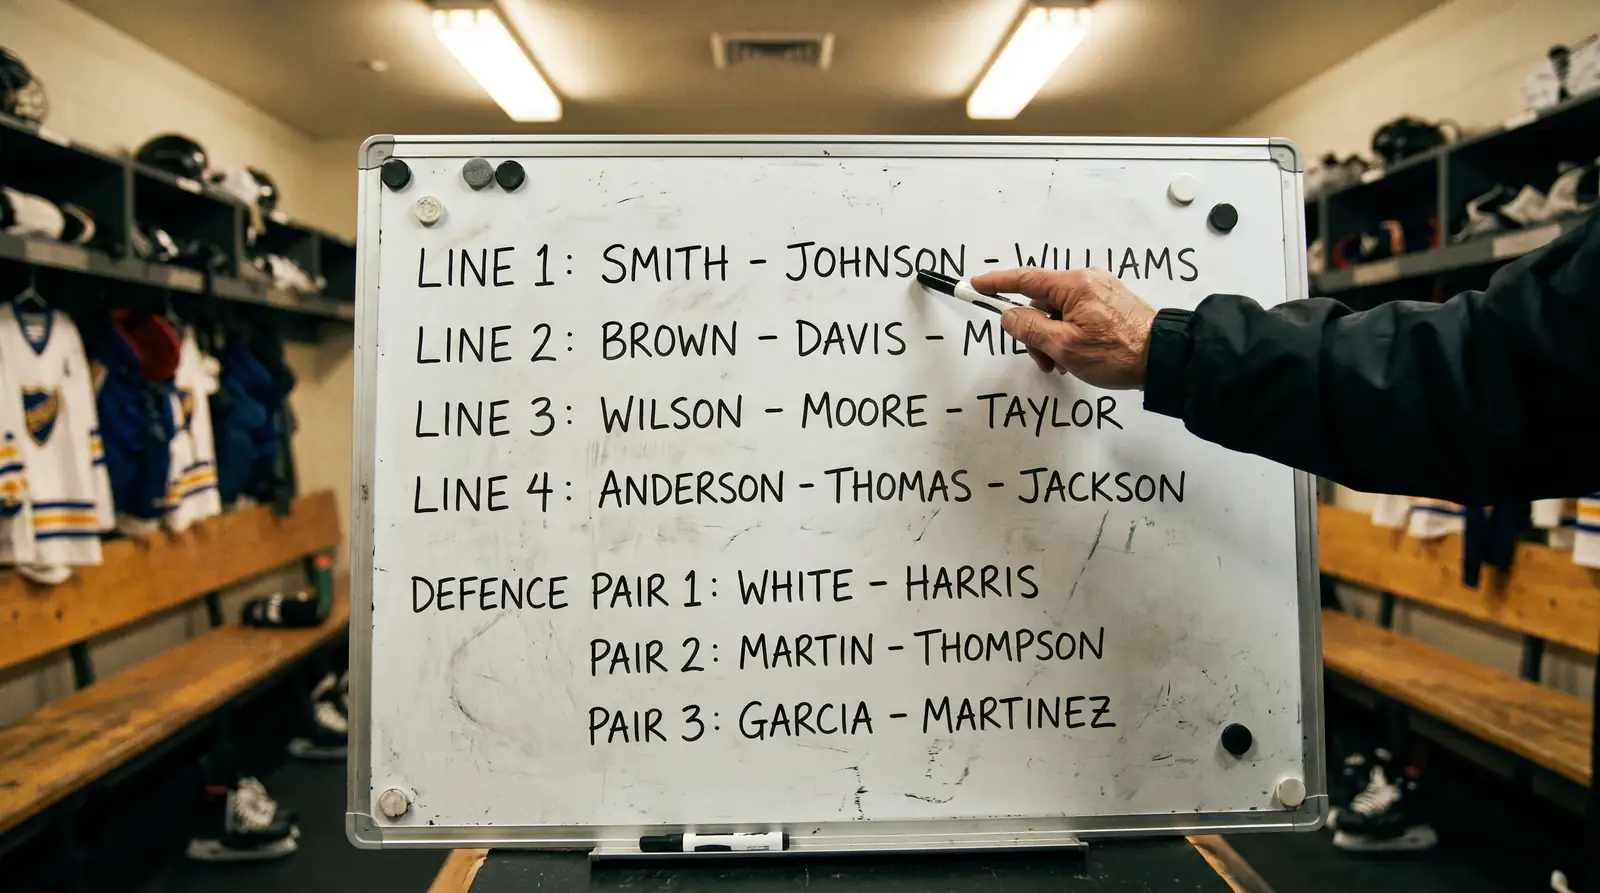 LINE 1: SMITH - JOHNSON - WILLIAMS
LINE 2: BROWN - DAVIS -
LINE 3: WILSON - MOORE - TAYLOR
LINE 4: ANDERSON - THOMAS - JACKSON
DEFENCE PAIR 1: WHITE - HARRIS
PAIR 2: MARTIN - THOMPSON
PAIR 3: GARCIA - MARTINEZ